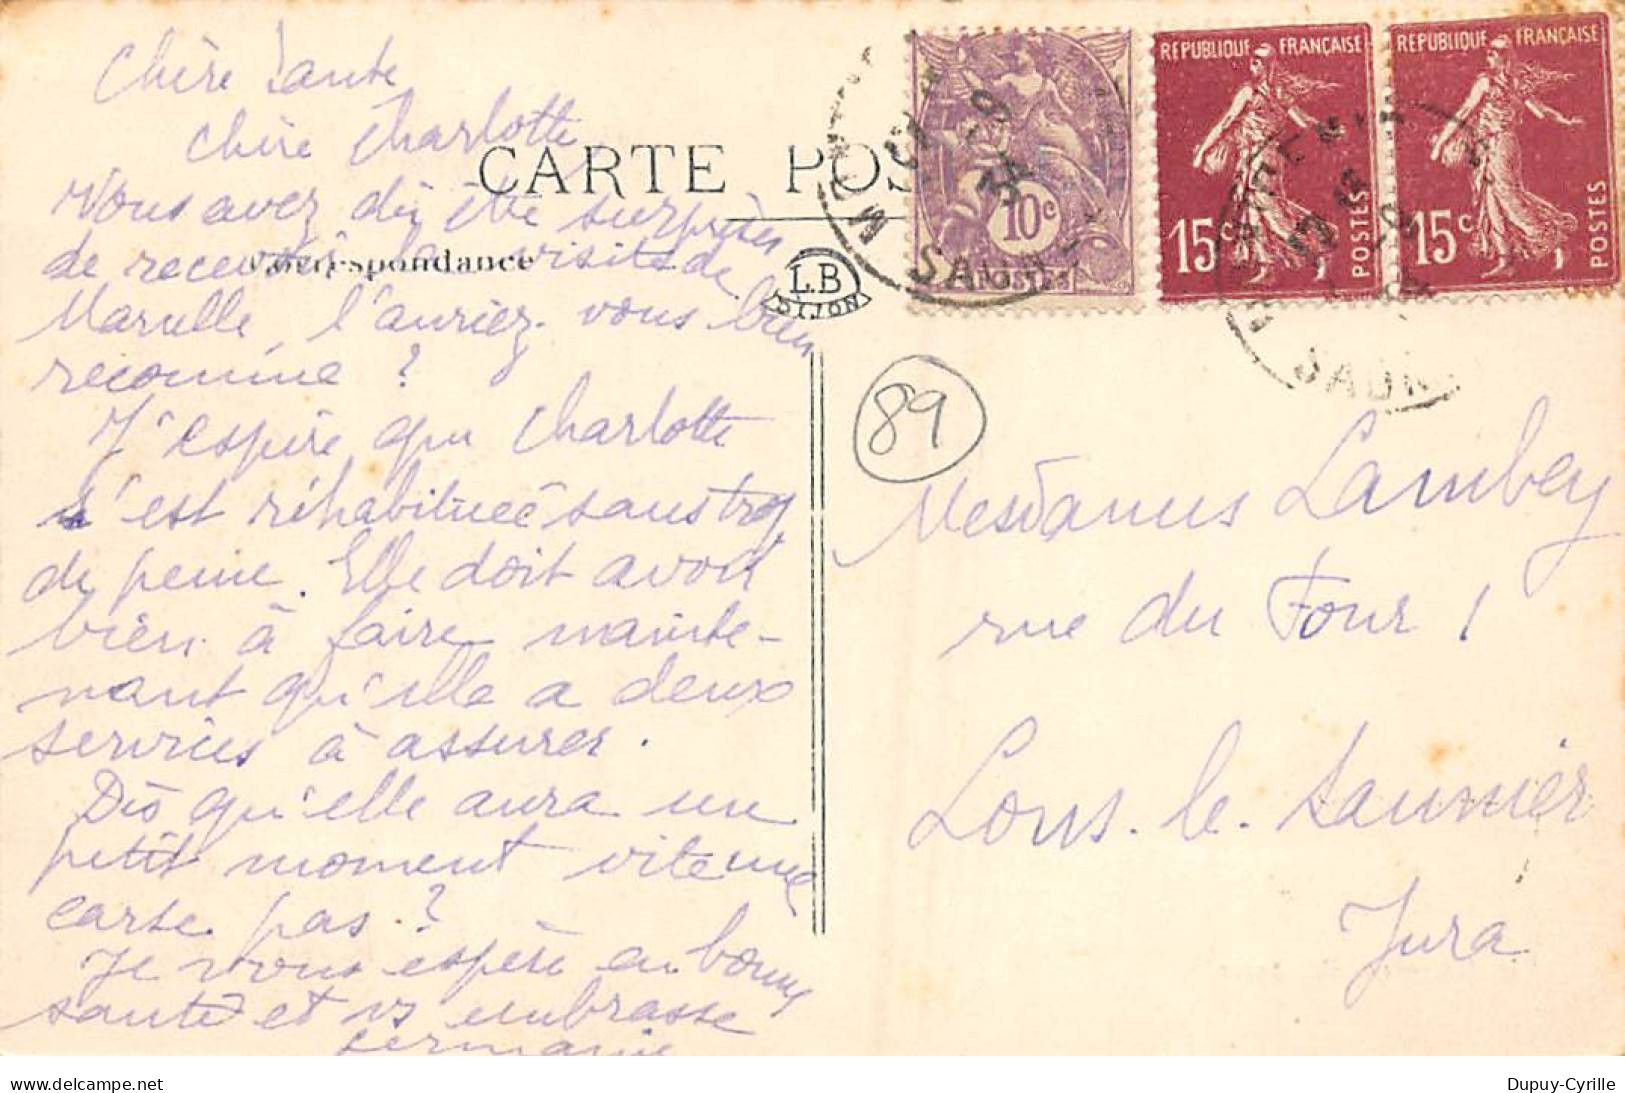 Chère Tante
Chère Charlotte
CARTE POS
Vous avez dû être surprises
de recevoir la visite de
Correspondance
Marcelle l'auriez-vous bien
reconnue ?
J'espère que Charlotte
s'est réhabituée sans trop
de peine. Elle doit avoir
bien à faire mainte-
nant qu'elle a deux
services à assurer.
Dis qu'elle aura un
petit moment vite une
carte pas ?
Je vous espère en bonne
santé et vs embrasse
Germaine
L.B
DIJON
10c
POSTES
REPUBLIQUE FRANÇAISE
15c
POSTES
REPUBLIQUE FRANÇAISE
15c
POSTES
89
Mesdames Lambey
rue du Four 1
Lons-le-Saunier
Jura
www.delcampe.net
Dupuy-Cyrille